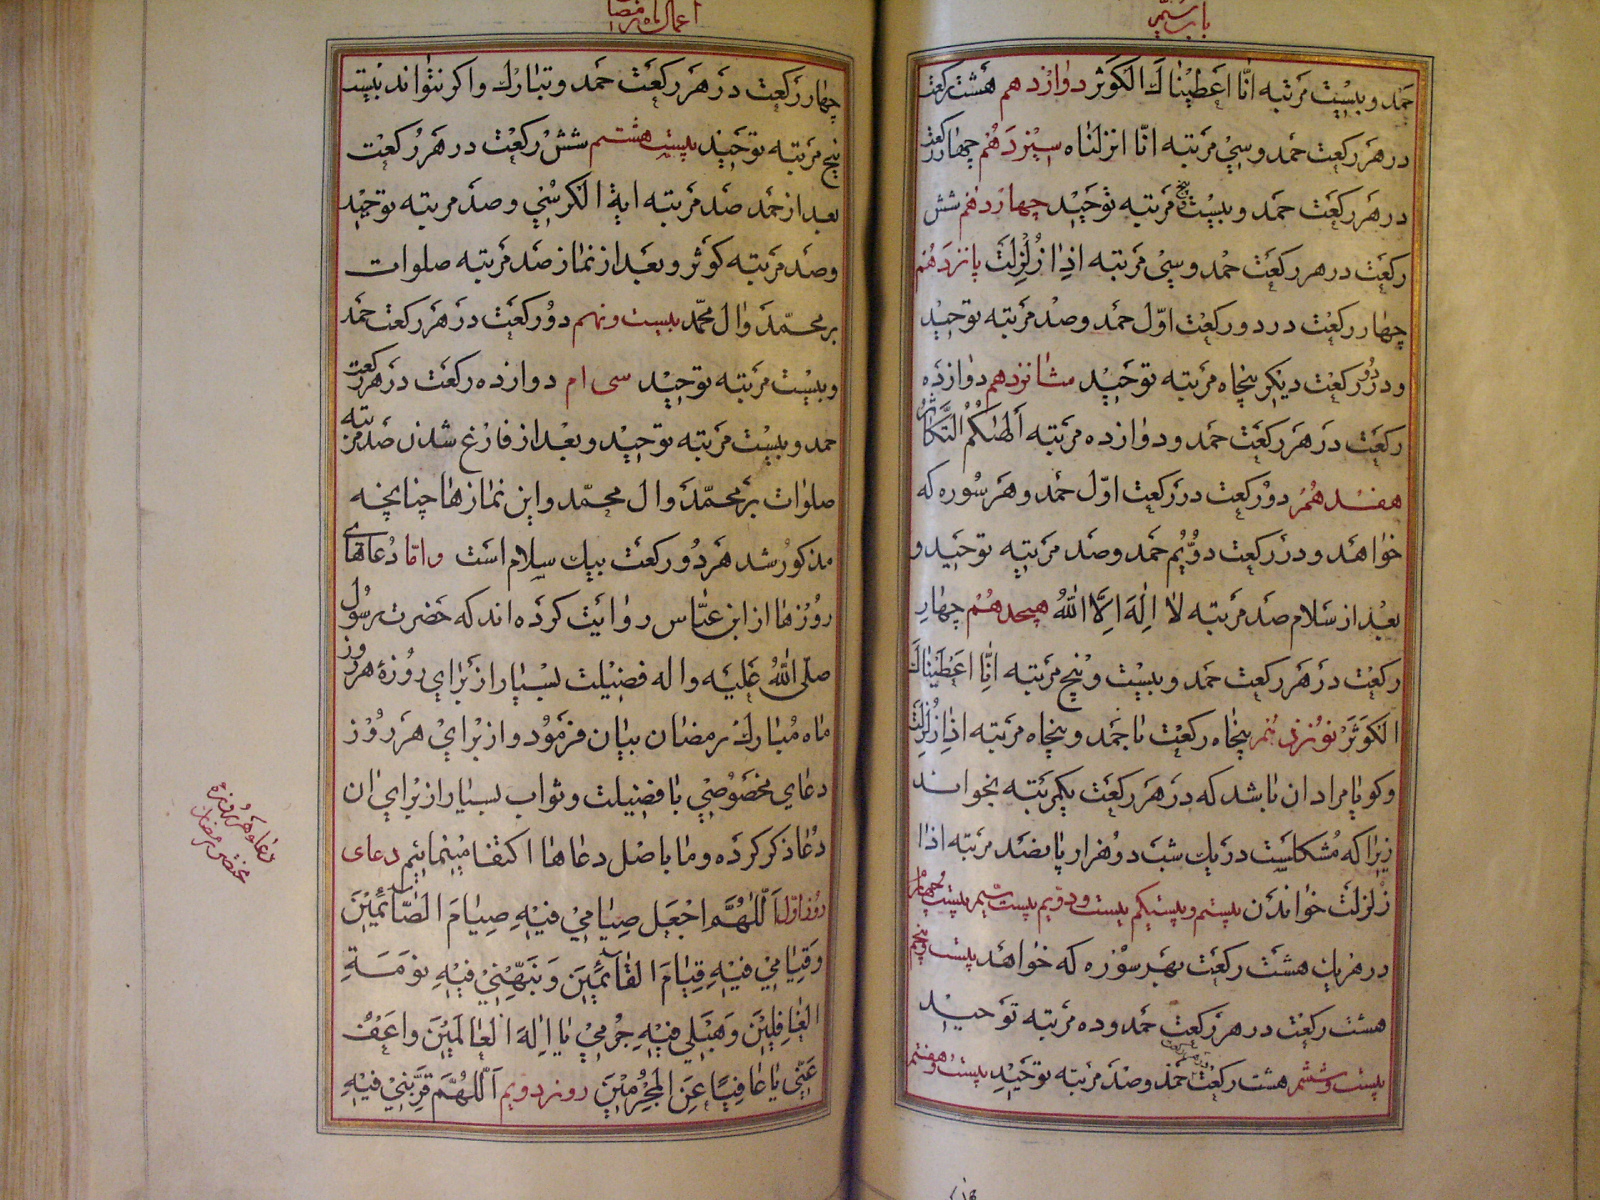 باب سیم
حمد و بیست مرتبه انّا اعطیناك الکوثر دوازدهم هشت رکعت
در هر رکعت حمد و سی مرتبه انّا انزلناه سیزدهم چهار رکعت
در هر رکعت حمد و بیست پنج مرتبه توحید چهاردهم شش
رکعت در هر رکعت حمد و سی مرتبه اذا زلزلت پانزدهم
چهار رکعت در دو رکعت اوّل حمد و صد مرتبه توحید
و در دو رکعت دیکر پنجاه مرتبه توحید شانزدهم دوازده
رکعت در هر رکعت حمد و دوازده مرتبه ألهٰکم التّکاثر
هفدهم دو رکعت در رکعت اوّل حمد و هر سوره که
خواهد و در رکعت دوّیم حمد و صد مرتبه توحید و
بعد از سلام صد مرتبه لا اله الّا اللّه هیجدهم چهار
رکعت در هر رکعت حمد و بیست و پنج مرتبه انّا اعطیناك
الکوثر نوزدهم پنجاه رکعت با حمد و پنجاه مرتبه اذا زلزلت
و کویا مراد ان باشد که در هر رکعت یکمرتبه بخواند
زیرا که مشکلست در یك شب دو هزار پانصد مرتبه اذا
زلزلت خواندن بیستم و بیستیکم بیست و دویم بیست سیم بیست چهارم
در هر یك هشت رکعت بهر سوره که خواهد بیست و پنجم
هشت رکعت در هر رکعت حمد و ده مرتبه توحید
بیست و ششم هشت رکعت حمد و صد مرتبه توحید بیست و هفتم
اعمال ماه رمضان
چهار رکعت در هر رکعت حمد و تبارك و اکر نتواند بیست
پنج مرتبه توحید بیست هشتم شش رکعت در هر رکعت
بعد از حمد صد مرتبه ایة الکرسی و صد مرتبه توحید
و صد مرتبه کوثر و بعد از نماز صد مرتبه صلوات
بر محمّد و ال محمّد بیست و نهم دو رکعت در هر رکعت حمد
و بیست مرتبه توحید سی ام دوازده رکعت در هر رکعت
حمد و بیست مرتبه توحید و بعد از فارغ شدن صد مرتبه
صلوات بر محمّد و ال محمّد و این نمازها چنانچه
مذکور شد هر دو رکعت بیك سلام است و امّا دعاهای
روزها از ابن عبّاس روایت کرده اند که حضرت رسول
صلّی اللّه علیه و اله فضیلت بسیار از برای روزهٔ هر روز
ماه مبارك رمضان بیان فرمود و از برای هر روز
دعای مخصوصی با فضیلت و ثواب بسیار از برای ان
دعا ذکر کرده و ما باصل دعاها اکتفا مینمائیم دعای
روز اوّل اَللّهُمَّ اجْعَل صِیامی فیهِ صِیامَ الصّائمینَ
وَ قِیامی فیهِ قِیامَ القائمینَ وَ نَبِّهنی فیهِ نَومَةِ
الغافِلینَ وَ هَب لی فیهِ جُرمی یا اِلهَ العالَمینَ وَ اعفُ
عَنّی یا عافِیًا عَنِ المُجرِمینَ روز دویم اَللّهُمَّ قَرِّبنی فیهِ
دعاء هر روزه
مختص رمضان